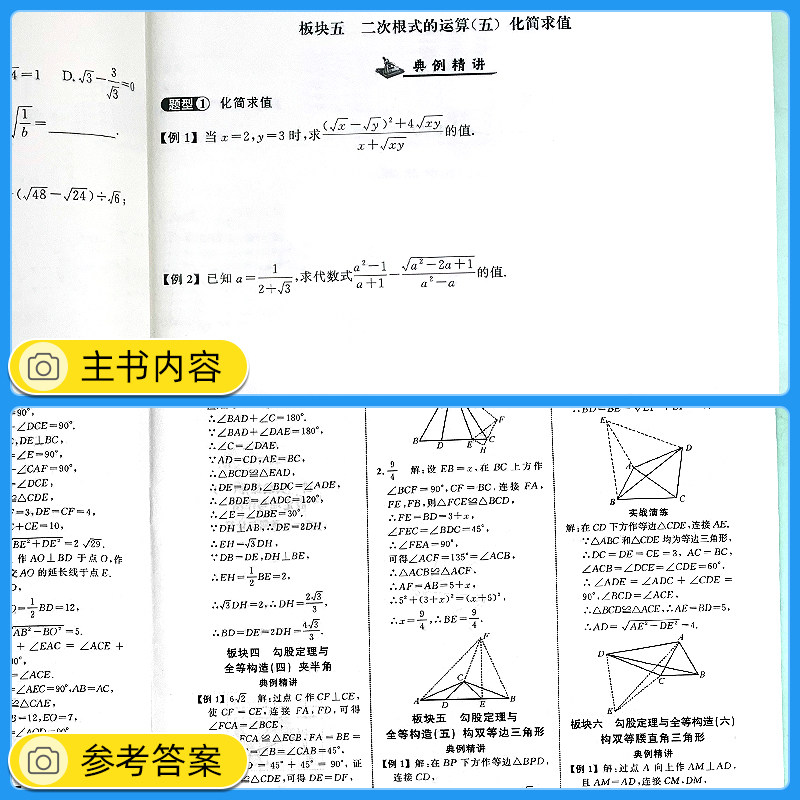 板块五 二次根式的运算(五) 化简求值
典例精讲
=1 D. √3-3/√3=0
√(1/b)=________.
(√48-√24)÷√6;
题型① 化简求值
【例1】当x=2,y=3时,求((√x-√y)²+4√xy)/(x+√xy)的值.
【例2】已知a=1/(2+√3),求代数式(a²-1)/(a+1)-√(a²-2a+1)/(a²-a)的值.
主书内容
=90°,
∠DCE=90°.
,DE⊥BC,
∠E=90°,
∠CAF=90°,
∠DCE,
△CDE,
=3,DE=CF=4,
+CE=10,
√(BE²+DE²)=2√29.
作AO⊥BD于点O,作
交AO的延长线于点E.
=1/2BD=12,
√(AB²-BO²)=5.
+∠EAC=∠ACE+
∠ACE.
=∠AEC=90°,AB=AC,
△CAE,
=12,EO=7,
∴∠BAD+∠C=180°.
∵∠BAD+∠DAE=180°,
∴∠C=∠DAE.
∵AD=CD,AE=BC,
∴△BCD≌△EAD,
∴DE=DB,∠BDC=∠ADE,
∴∠BDE=∠ADC=120°,
∴∠E=∠DBE=30°.
∵DH⊥AB,∴DE=2DH,
∴EH=√3DH,
∵DB=DE,DH⊥BE,
∴EH=1/2BE=2,
∴√3DH=2,∴DH=2√3/3,
∴BD=DE=2DH=4√3/3.
板块四 勾股定理与
全等构造(四) 夹半角
典例精讲
【例1】6√2 解:过点C作CF⊥CE,
使CF=CE,连接FA,FD,可得
∠FCA=∠BCE,
FCA≌△ECB,FA=BE=
=∠B=∠CAB=45°,
=45°+45°=90°,证
≌△CDE,可得DE=DF,
F
B D E C
H
2. 9/4 解:设EB=x,在BC上方作
∠BCF=90°,CF=BC.连接FA,
FE,FB,则△FCE≌△BCD,
∴FE=BD=3+x,
∠FEC=∠BDC=45°,
∴∠FEA=90°,
可得∠ACF=135°=∠ACB,
∴△ACB≌△ACF,
∴AF=AB=5+x,
∴5²+(3+x)²=(x+5)²,
∴x=9/4,∴BE=9/4.
F
C
A D E B
板块五 勾股定理与
全等构造(五) 构双等边三角形
典例精讲
【例1】解:在BP下方作等边△BPD,
连接CD,
E
D
A
B C
实战演练
解:在CD下方作等边△CDE,连接AE.
∵△ABC和△CDE均为等边三角形,
∴DC=DE=CE=3,AC=BC,
∠ACB=∠DCE=∠CDE=60°,
∴∠ADE=∠ADC+∠CDE=
90°,∠BCD=∠ACE.
∴△BCD≌△ACE,∴AE=BD=5,
∴AD=√(AE²-DE²)=4.
A
D
C B
E
板块六 勾股定理与全等构造(六)
构双等腰直角三角形
典例精讲
【例1】解:过点A向上作AM⊥AD,
且AM=AD,连接CM,DM,
参考答案